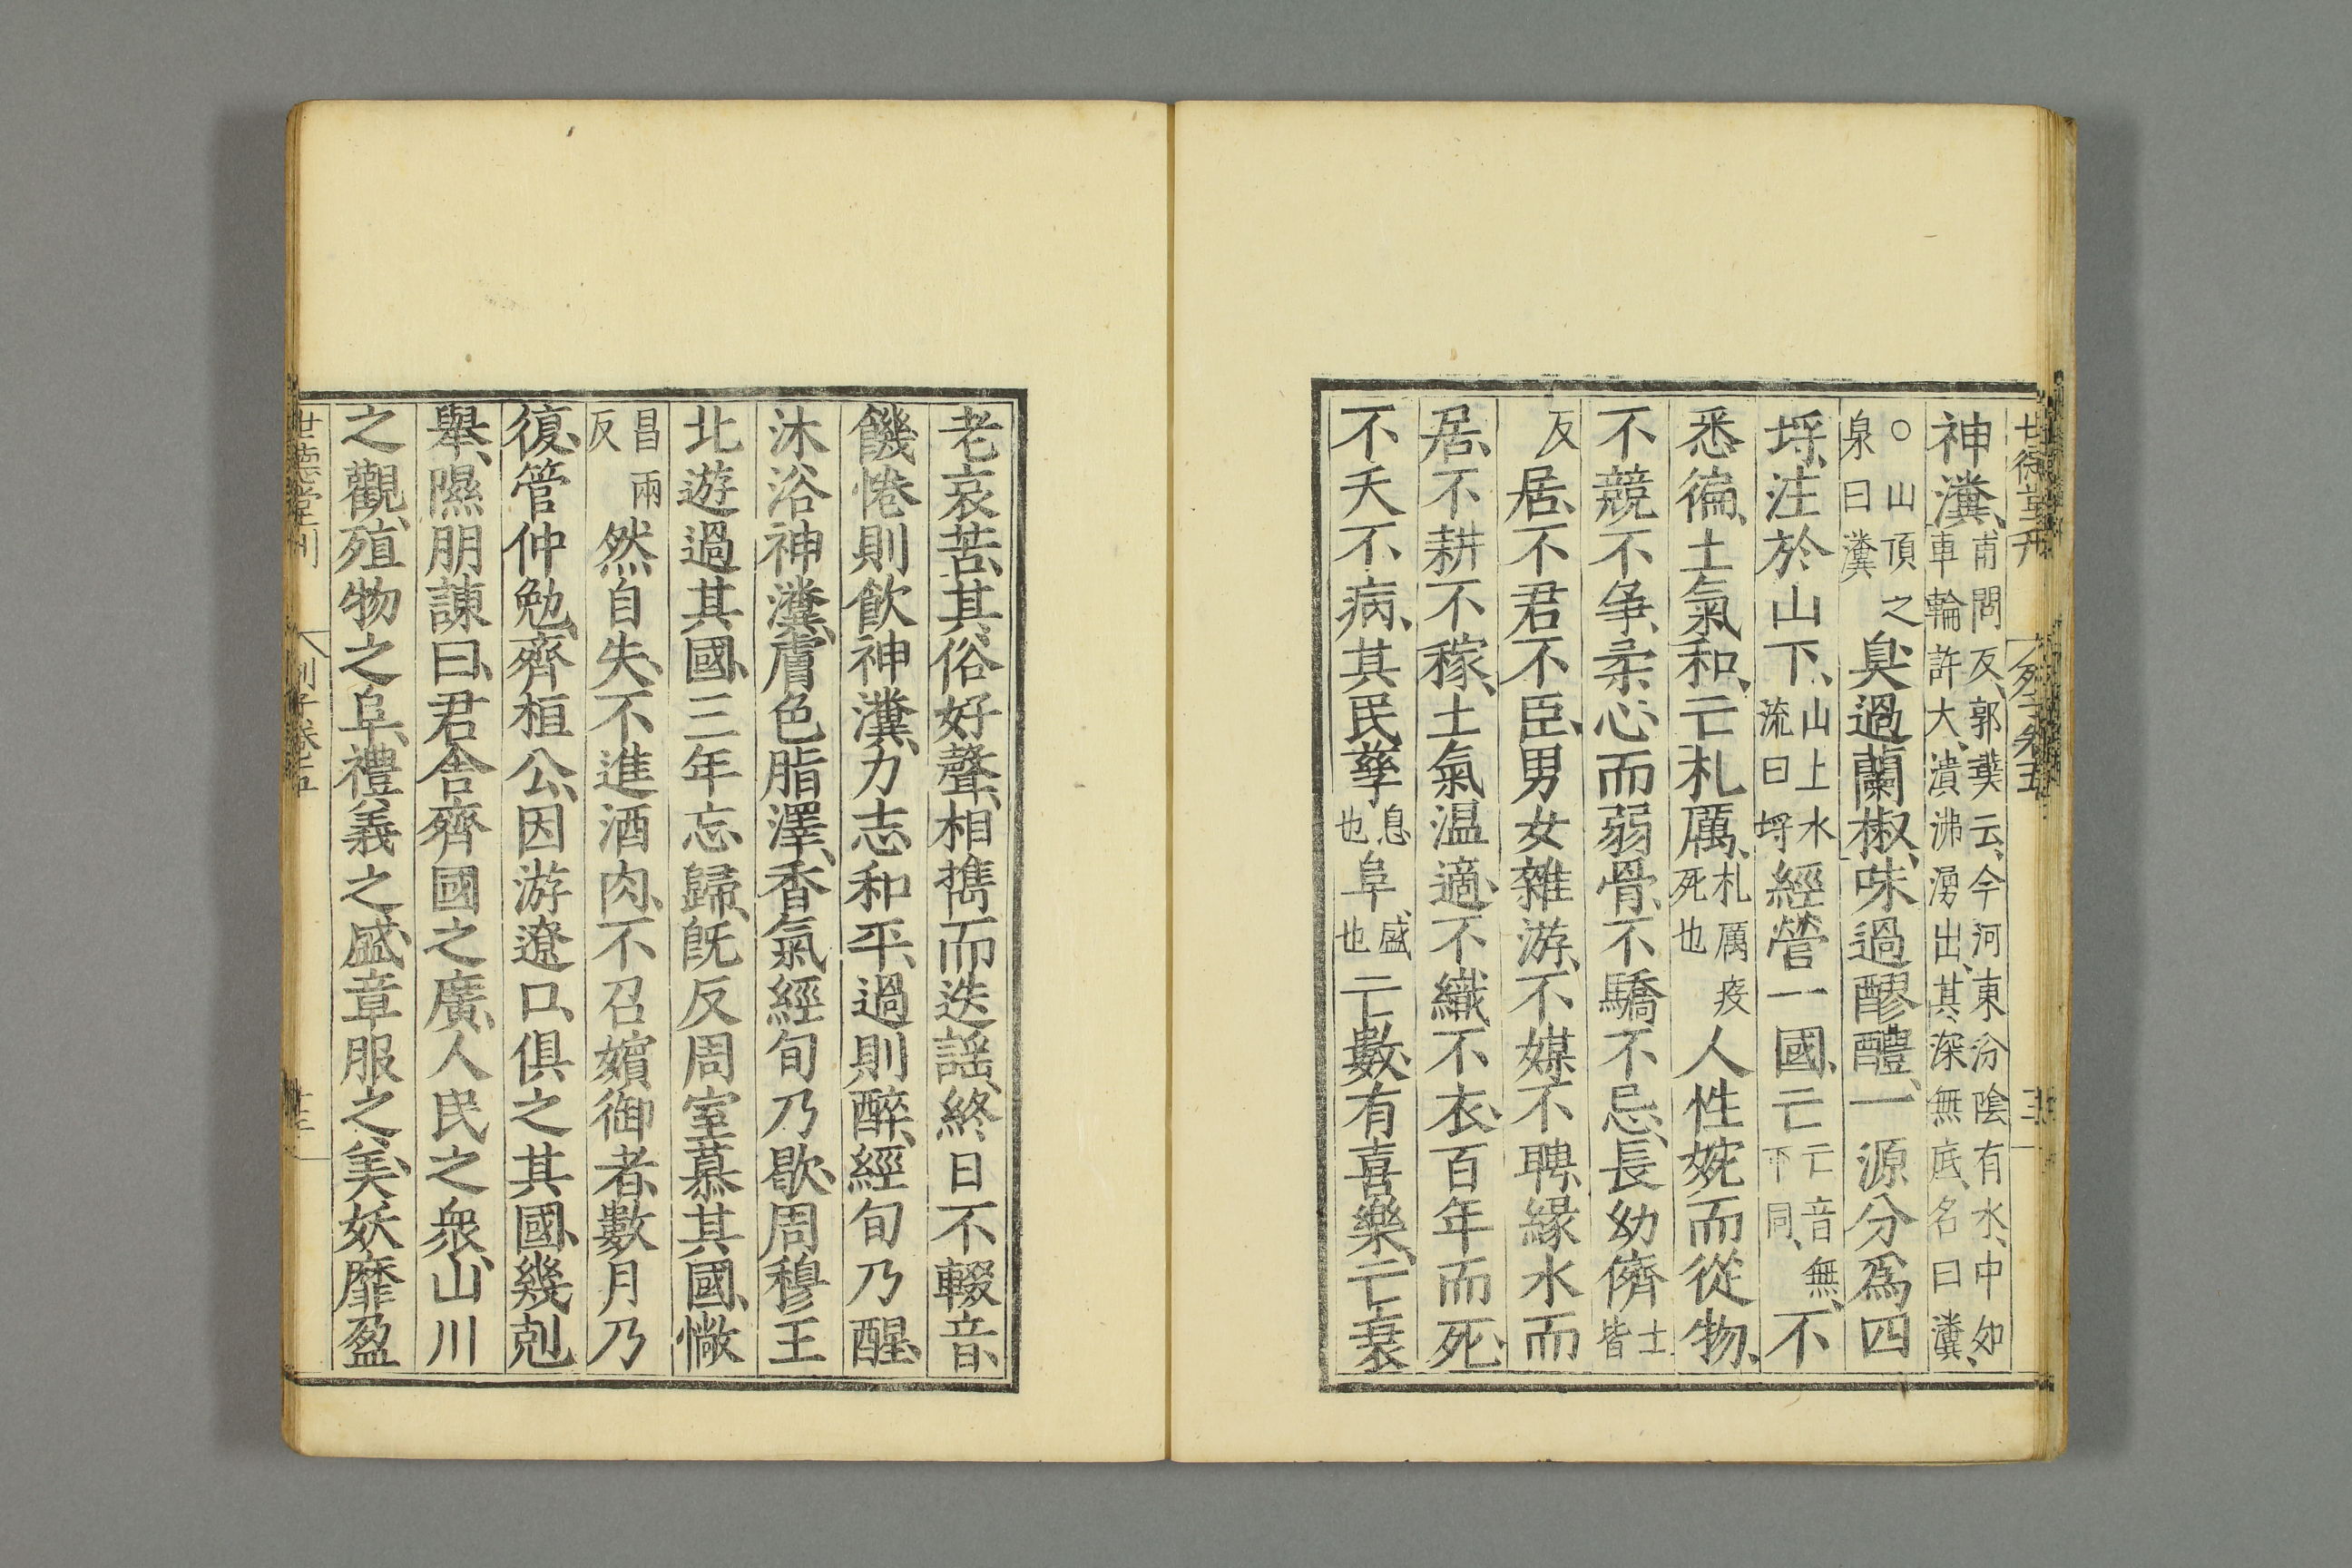 神瀵、甫問反、郭璞云、今河東汾陰有水、中如車輪許大、濆沸湧出、其深無底、名曰瀵、
○山頂之泉曰瀵臭過蘭椒、味過醪醴、一源分爲四
埒、注於山下、山上水流曰埒經營一國、亡亡音無、下同、不
悉徧、土氣和、亡札厲、札厲疫死也人性婉而從物、
不競不争、柔心而弱骨、不驕不忌、長幼儕士皆
反居、不君不臣、男女雜游、不媒不聘、緣水而
居、不耕不稼、土氣温適、不織不衣、百年而死、
不夭不病、其民孳息也阜盛也亡數、有喜樂、亡衰
老哀苦、其俗好聲、相擕而迭謠、終日不輟音、
饑惓則飲神瀵、力志和平、過則醉、經旬乃醒、
沐浴神瀵、膚色脂澤、香氣經旬乃歇、周穆王
北遊過其國、三年忘歸、旣反周室慕其國、惝
昌兩反然自失、不進酒肉、不召嬪御者、數月乃
復、管仲勉齊桓公、因游遼口、俱之其國、幾剋
舉、隰朋諫曰、君舍齊國之廣、人民之衆、山川
之觀、殖物之阜、禮義之盛、章服之美、妖靡盈
世德堂刊 列子卷五